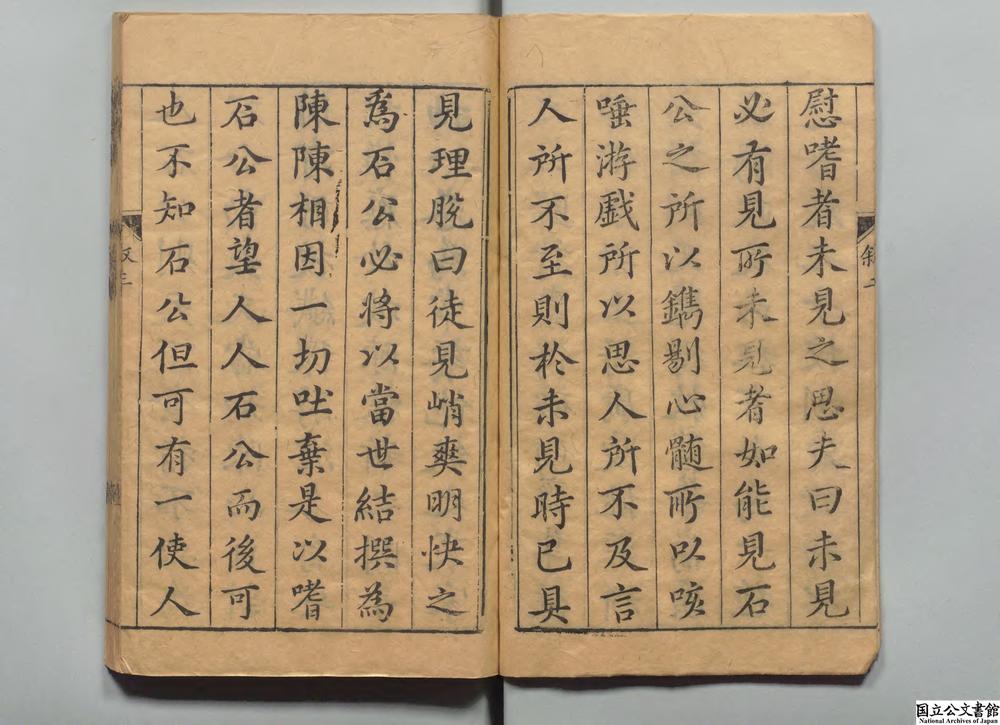 慰嗜者未見之思夫曰未見
必有見所未見者如能見石
公之所以鐫剔心髓所以咳
唾游戲所以思人所不及言
人所不至則於未見時已具
敘二
見理脫曰徒見峭爽明快之
爲石公必將以當世結撰為
陳陳相因一切吐棄是以嗜
石公者望人人石公而後可
也不知石公但可有一使人
叙三
国立公文書館
National Archives of Japan